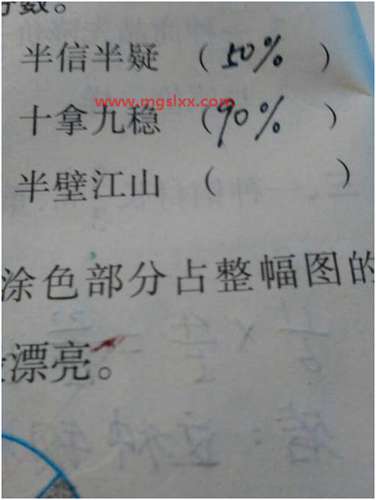 数。
半信半疑 （50%）
www.mgslxx.com
十拿九稳 （90%）
半壁江山 （ ）
涂色部分占整幅图的
漂亮。